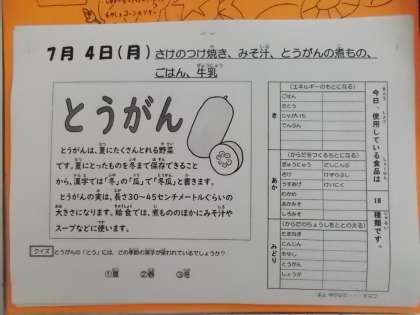 7月 4日(月) さけのつけ焼き、みそ汁、とうがんの煮もの、
ごはん、牛乳
とうがん
とうがんは、夏にたくさんとれる野菜
です。夏にとったものを冬まで保存できること
から、漢字では「冬」の「瓜」で「冬瓜」と書きます。
とうがんの実は、長さ30~45センチメートルぐらいの
大きさになります。給食では、煮もののほかにみそ汁や
スープなどに使います。
クイズ とうがんの「とう」には、どの季節の漢字が使われているでしょうか?
①夏 ②春 ③冬
今日、使用している食品は 18 種類です。
き
(エネルギーのもとになる)
ごはん
さとう
じゃがいも
でんぷん
あか
(からだをつくるもとになる)
ぎゅうにゅう
さけ
うすあげ
わかめ
あかみそ
しろみそ
だしこんぶ
けずりぶし
けいにく
みどり
(からだのちょうしをととのえる)
たまねぎ
にんじん
もやし
とうがん
しょうが